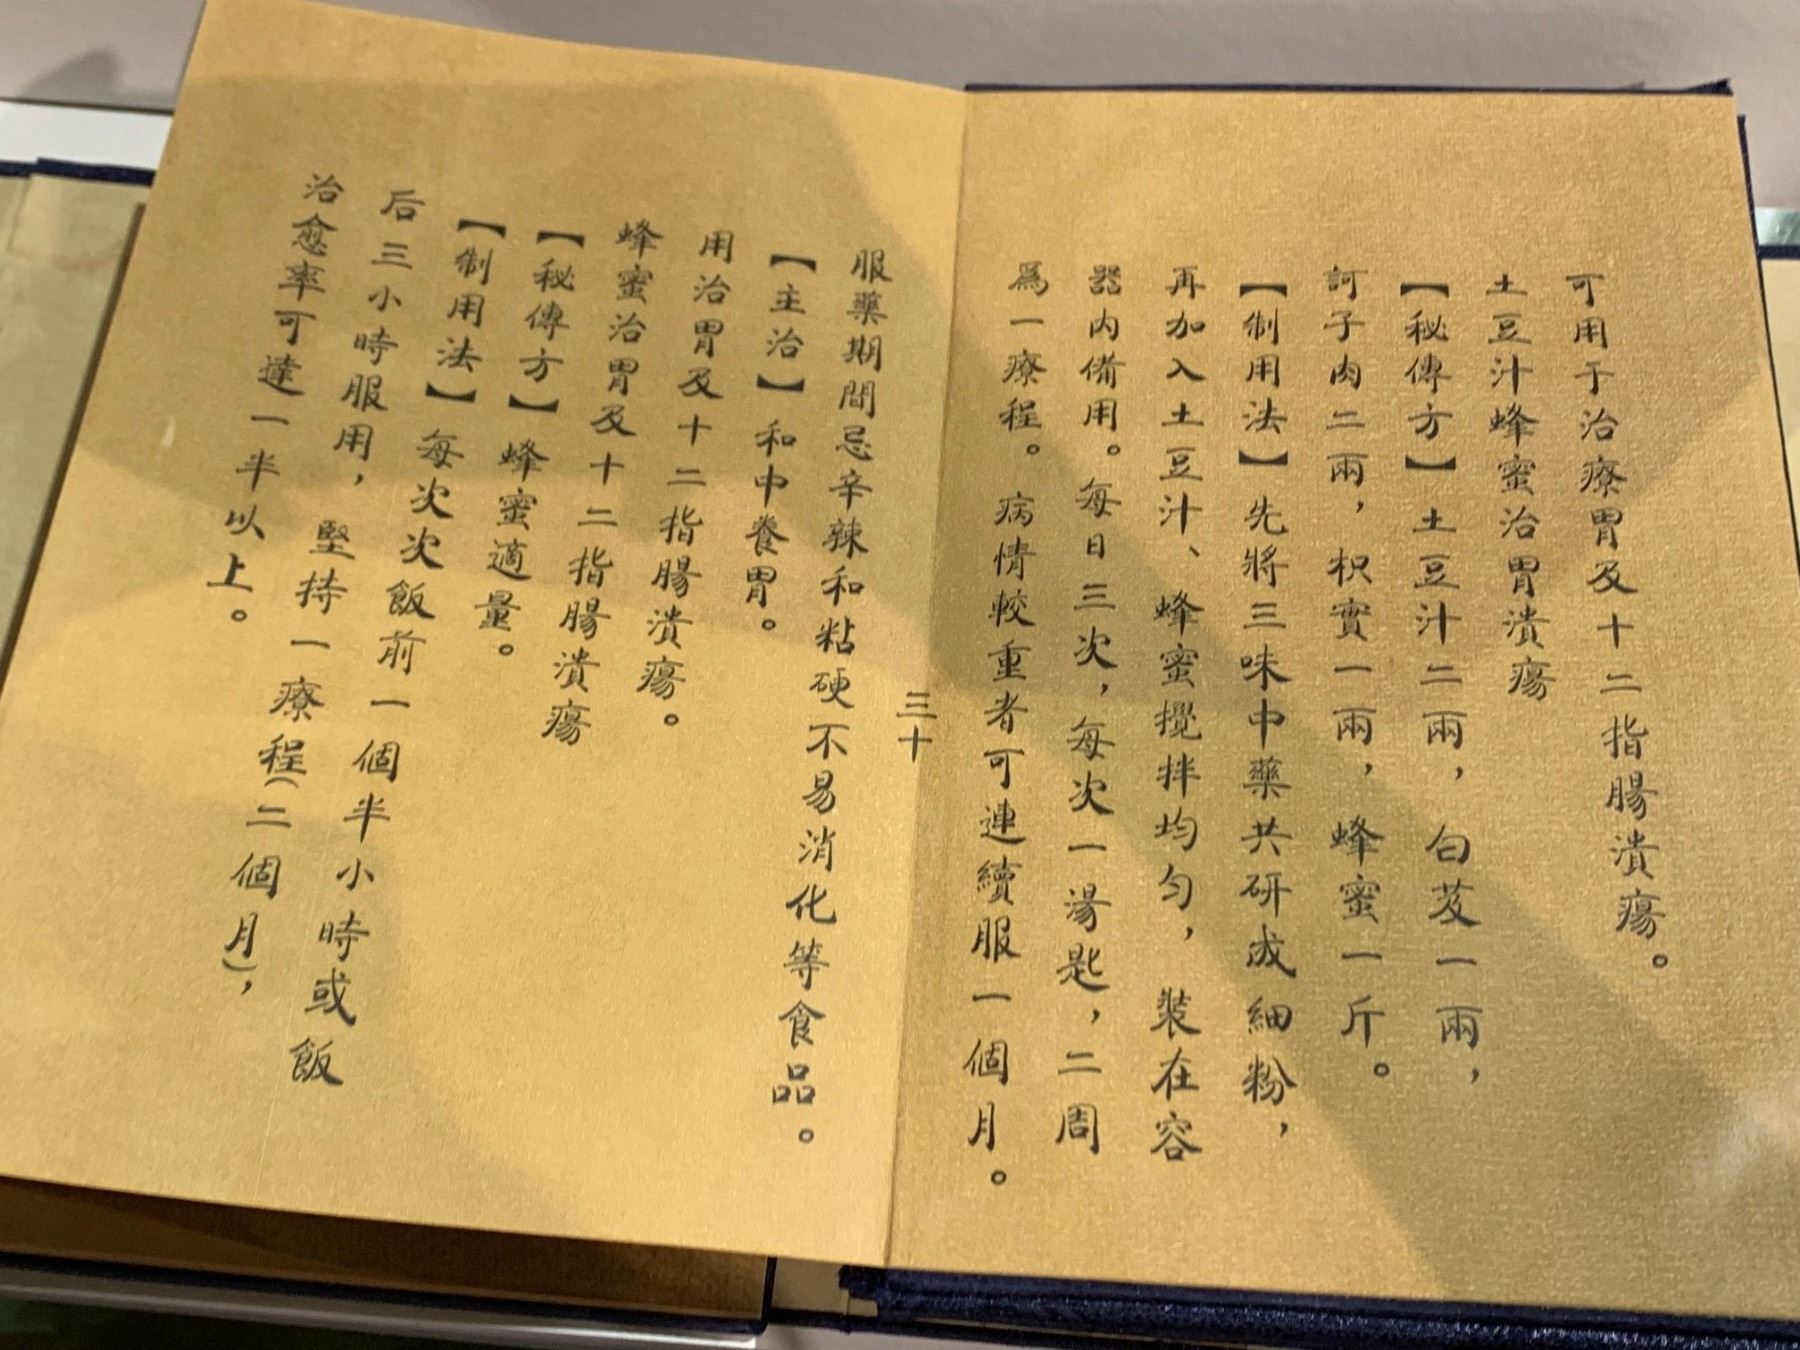 可用于治療胃及十二指腸潰瘍。
土豆汁蜂蜜治胃潰瘍
【秘傳方】土豆汁二兩，白芨一兩，
訶子肉二兩，枳實一兩，蜂蜜一斤。
【制用法】先將三味中藥共研成細粉，
再加入土豆汁、蜂蜜攪拌均勻，裝在容
器内備用。每日三次，每次一湯匙，二周
爲一療程。病情較重者可連續服一個月。
三十
服藥期間忌辛辣和粘硬不易消化等食品。
【主治】和中養胃。
用治胃及十二指腸潰瘍。
蜂蜜治胃及十二指腸潰瘍
【秘傳方】蜂蜜適量。
【制用法】每次次飯前一個半小時或飯
后三小時服用，堅持一療程（二個月），
治愈率可達一半以上。